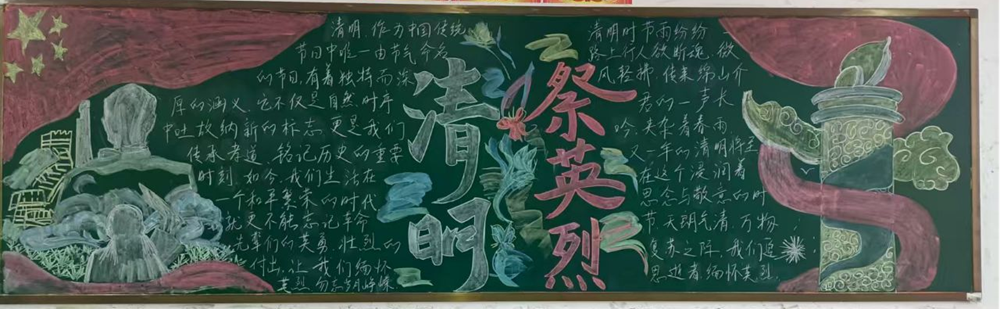 清明，作为中国传统
节日中唯一由节气命名
的节日，有着独特而深
厚的涵义。它不仅是自然时序
中吐故纳新的标志，更是我们
传承孝道、铭记历史的重要
时刻。如今，我们生活在
一个和平繁荣的时代
就更不能忘记革命
先辈们的英勇壮烈的
付出，让我们缅怀
英烈，勿忘
清明
祭英烈
清明时节雨纷纷，
路上行人欲断魂。微
风轻拂，传来绵山介
君的一声长
吟，夹杂着春雨，
又一年的清明将至
在这个浸润着
思念与敬意的时
节，天朗气清，万物
复苏之际，我们追
思逝者，缅怀英烈。